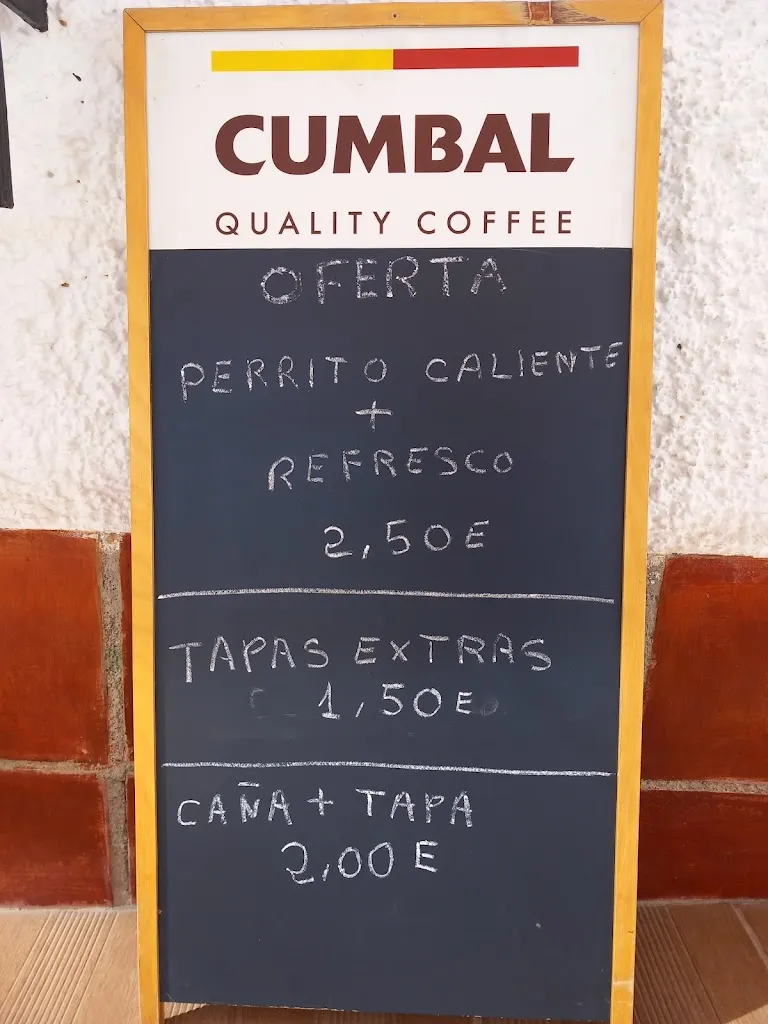 CUMBAL
QUALITY COFFEE
OFERTA
PERRITO CALIENTE
+
REFRESCO
2,50E
TAPAS EXTRAS
1,50E
CAÑA + TAPA
2,00E